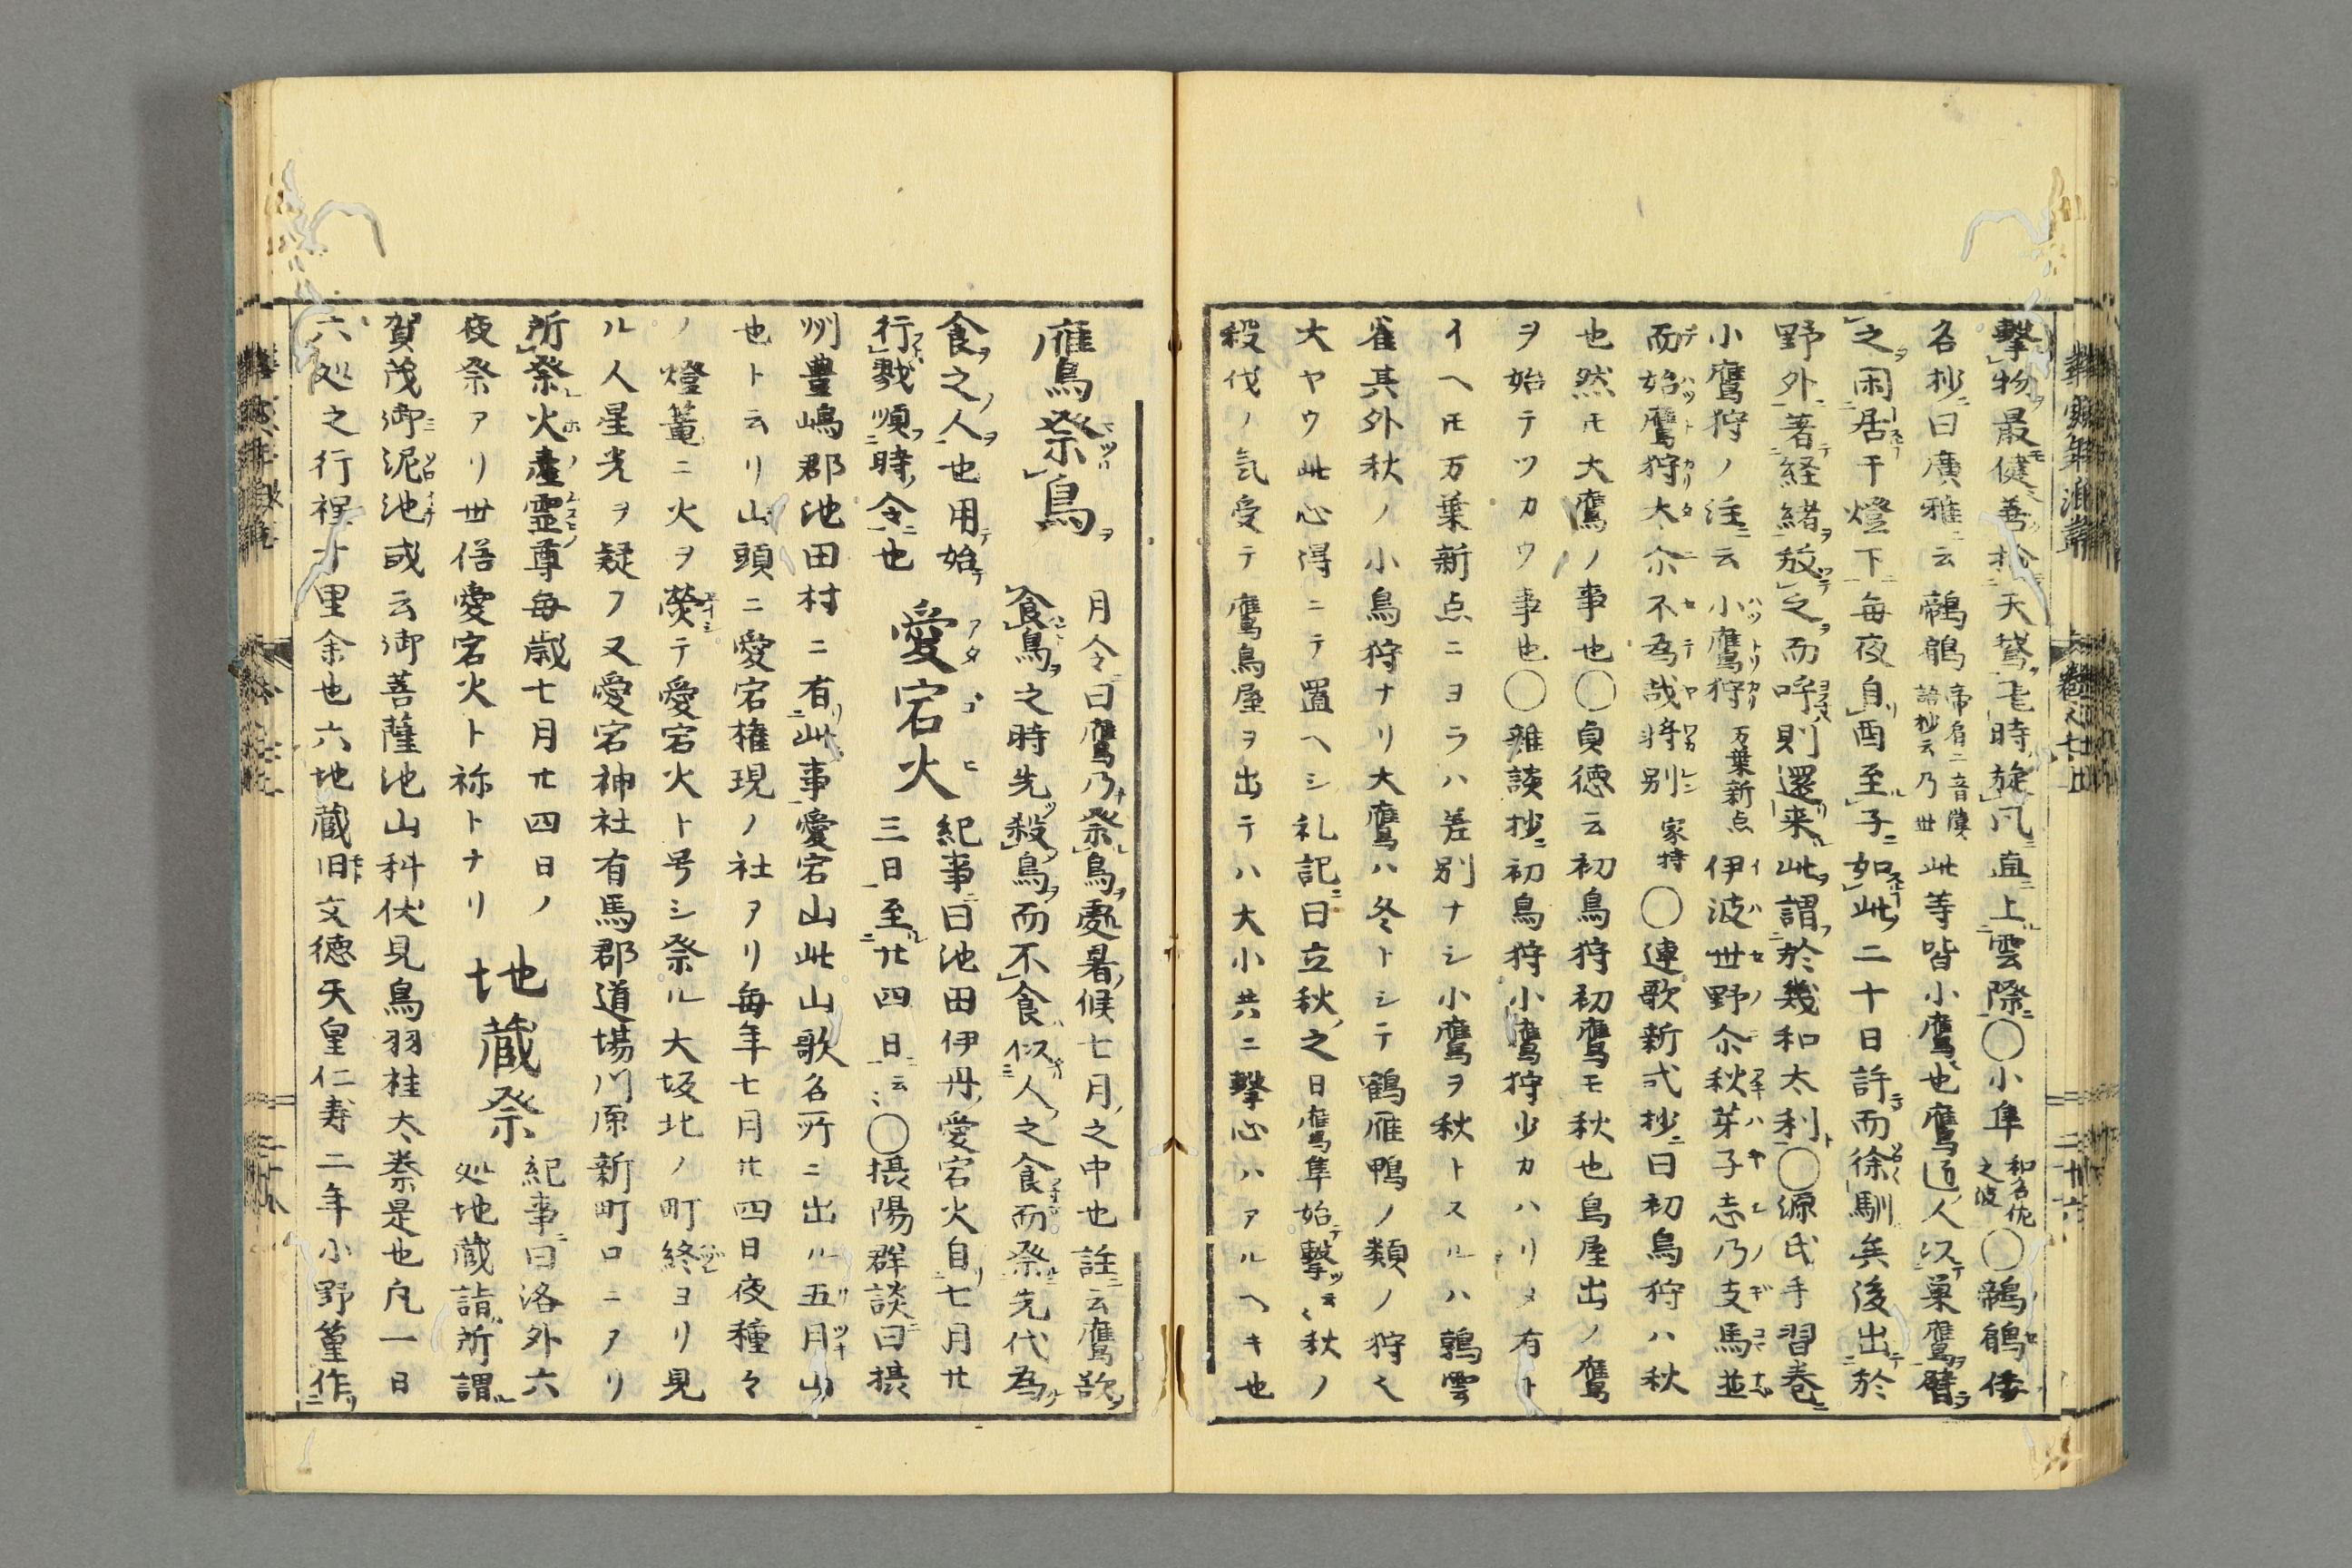 擊物最健善捨天鵞毛時旋凡直上雲際○小隼 和名佐之波 ○鶙鵳倭
名抄曰廣雅云鶙鵳 帝肩二音漢語抄云乃世 此等皆小鷹也鷹逎人以巣鷹臂
之閑居于燈下毎夜自酉至子如此二十日許而徐馴矣後出於
野外著経緒放之而呼則還来此謂於幾和太利○源氏手習巻
小鷹狩ノ注云小鷹狩 万葉新点 伊波世野尒秋芽子志乃支馬並
而始鷹狩太尒不為哉将別 家持 ○連歌新式抄曰初鳥狩ハ秋
也然𪜈大鷹ノ事也○貞徳云初鳥狩初鷹モ秋也鳥屋出ノ鷹
ヲ始テツカウ事也○雑談抄初鳥狩小鷹狩少カハリタ有ト
イヘ𪜈万葉新点ニヨラハ差別ナシ小鷹ヲ秋トスルハ鶉雲
雀其外秋ノ小鳥狩ナリ大鷹ハ冬トシテ鶴雁鴨ノ類ノ狩也
大ヤウ此心得ニテ置ヘシ礼記曰立秋之日鷹隼始擊云〻秋ノ
殺伐ノ気受テ鷹鳥屋ヲ出テハ大小共ニ擊心ハアルヘキ也
鷹鳥祭鳥 月令曰鷹乃祭鳥處暑候七月之中也註云鷹欲
食鳥之時先殺鳥而不食似人之食而祭先代為
食之人也用始
行戮順時令也
愛宕火 紀事曰池田伊丹愛宕火自七月廿
三日至廿四日云〻○摂陽群談曰摂
州豊嶋郡池田村ニ有此事愛宕山此山歌名所ニ出ル五月山
也ト云リ山頭ニ愛宕権現ノ社アリ毎年七月廿四日夜種々
ノ燈篭ニ火ヲ熒テ愛宕火ト号シ祭ル大坂北ノ町終ヨリ見
ル人星光ヲ疑フ又愛宕神社有馬郡道場川原新町口ニアリ
所祭火産霊尊毎歳七月廿四日ノ
夜祭アリ世俗愛宕火ト称トナリ
地蔵祭 紀事曰洛外六
処地蔵詣所謂
賀茂御泥池或云御菩薩池山科伏見鳥羽桂太秦是也凡一日
六処之行程十里余也六地蔵旧文徳天皇仁寿二年小野篁作